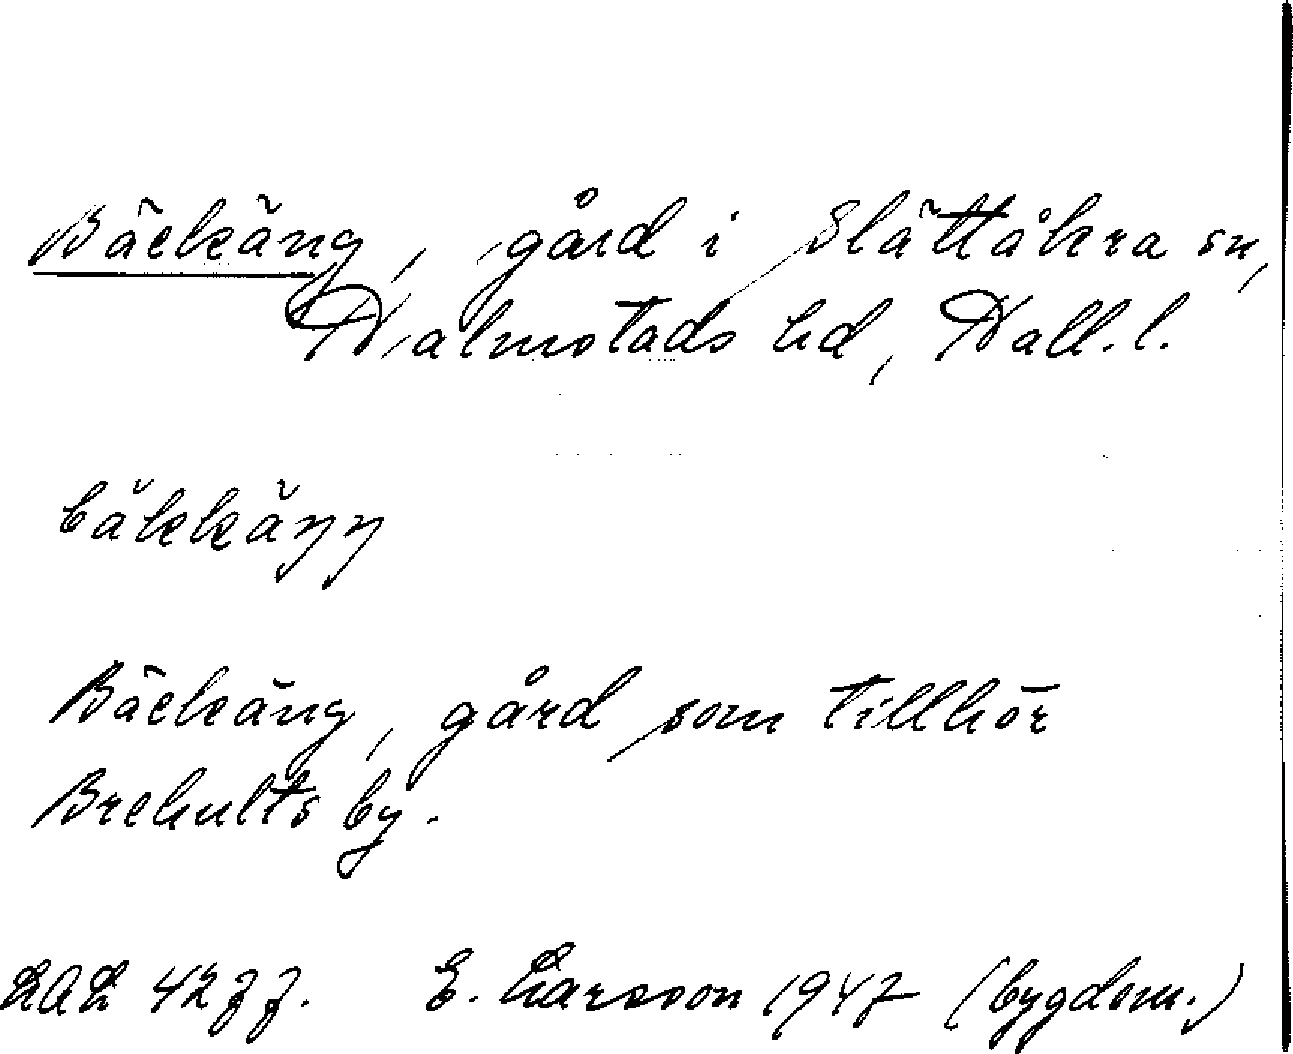 Bäckäng, gård i Slättåkra sn,
Halmstads hd, Hall. l.
bäkkäŋŋ
Bäckäng, gård som tillhör
Brehults by.
LAL 4233. E. Larsson 1947 (bygdem.)